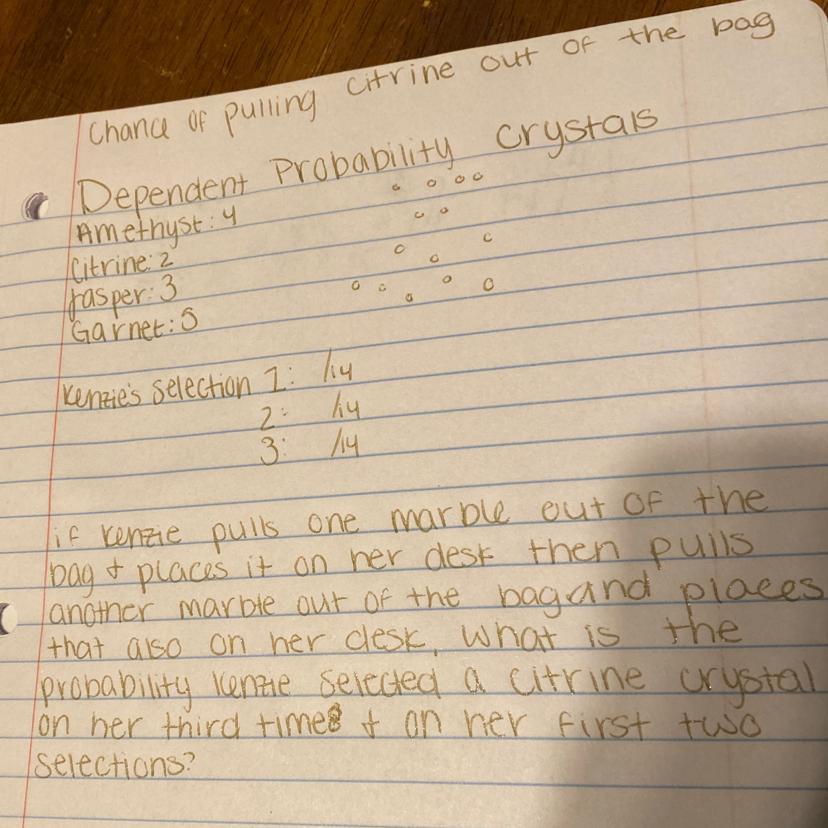 Chance of pulling citrine out of the bag
Dependent Probability Crystals
Amethyst: 4
Citrine: 2
Jasper: 3
Garnet: 5
Kenzie's Selection 1: /14
2: /14
3: /14
if Kenzie pulls one marble out of the
bag + places it on her desk then pulls
another marble out of the bag and places
that also on her desk, what is the
probability Kenzie selected a citrine crystal
on her third time + on her first two
selections?